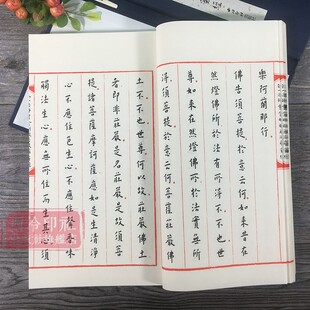 樂阿蘭那行
佛告須菩提於意云何如來昔在
然燈佛所於法有所得不不也世
尊如來在然燈佛所於法實無所
得須菩提於意云何菩薩莊嚴佛
土不不也世尊何以故莊嚴佛土
者即非莊嚴是名莊嚴是故須菩
提諸菩薩摩訶薩應如是生清淨
心不應住色生心不應住聲香味
觸法生心應無所住而生其心須